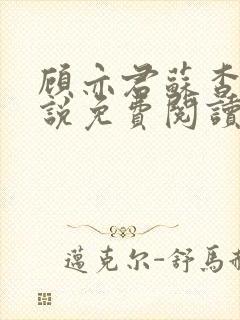 顾亦君蘇杳
說免費閱讀
邁克尔-舒馬赫